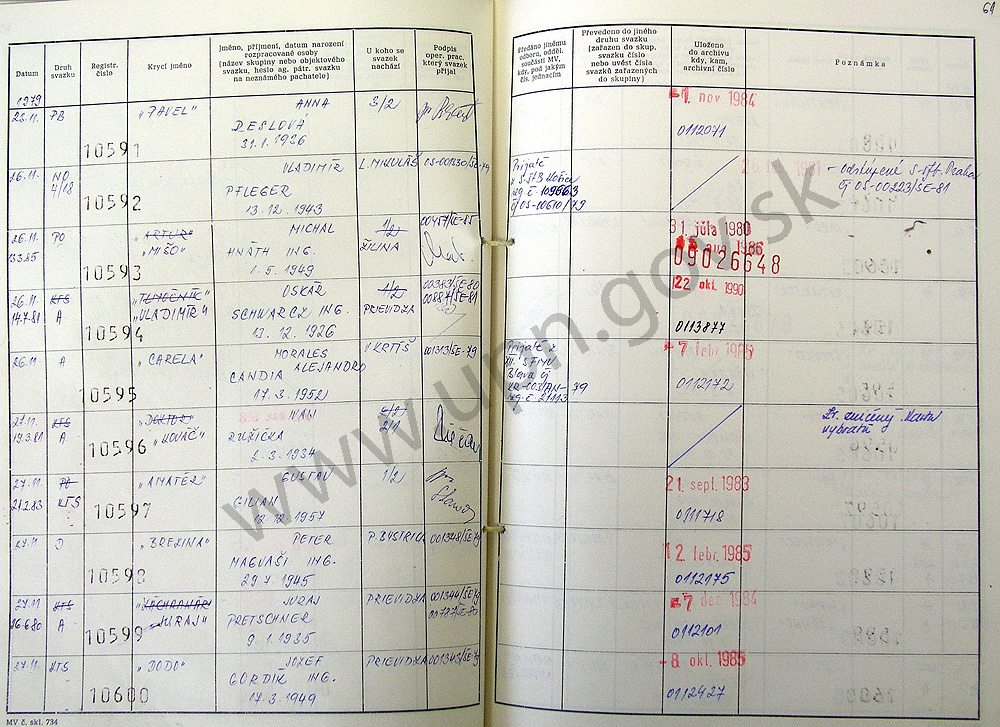 61
Datum
Druh svazku
Registr. číslo
Krycí jméno
Jméno, příjmení, datum narození rozpracované osoby (název skupiny nebo objektového svazku, heslo ag. pátr. svazku na neznámého pachatele)
U koho se svazek nachází
Podpis oper. prac. který svazek přijal
Předáno jinému odboru, odděl. součásti MV, kdy, pod jakým čís. jednacím
Převedeno do jiného druhu svazku (zařazen do skup. svazku číslo nebo uvést čísla svazků zařazených do skupiny)
Uloženo do archivu kdy, kam, archivní číslo
Poznámka
1979
26.11. PB 10591 „PAVEL" ANNA 3/2
DESLOVÁ
31.1.1926
-1. nov 1984
0112071
26.11. NO 4/18 10592 VLADIMÍR L. MIKULÁŠ 05-001230/ŠE-79
PFLEGER
13.12.1943
109663
čj 05-00610/79
čj 05-00223/ŠE-81
26.11. PO 10593 „ARTUR" MICHAL 1/2 00457/ŠE-85
„MIŠO" HNÁTH ING. ŽILINA
1.5.1949
31. júla 1980
aug 1986
09026648
26.11. KTS 10594 OSKÁR 1/2
14.7.81 A „VLADIMÍR" SCHWARCZ ING. PRIEVIDZA
13.12.1926
22 okt. 1990
0113877
26.11. A 10595 „CARELA" MORALES V KRTÍŠ 001313/ŠE-79
ALEJANDRO
CANDIA
17.3.1952
-7 febr 1985
0112172
27.11. KTS 10596 „DOKTOR" IVAN 2/1
19.3.81 A „KOVÁČ" RUŽIČKA
2.3.1934
27.11. PO 10597 „AMATÉR" GUSTAV 1/2
21.2.83 KTS CILIAN
12.12.1957
21. sept. 1983
0111718
27.11. D 10598 „BREZINA" PETER P. BYSTRICA 001348/ŠE-79
MAGVAŠI ING.
29.7.1945
12. febr. 1985
0112175
27.11 KTS 10599 JURAJ PRIEVIDZA 001344/ŠE-79
26.6.80 A „JURAJ" PRETSCHNER 00787/ŠE-80
9.1.1935
-7 dec 1984
0112101
27.11. KTS 10600 „DODO" JOZEF PRIEVIDZA 001343/ŠE-79
GORDÍK ING.
17.3.1949
-8. okt. 1985
0112427
MV č. skl. 734
www.upn.gov.sk